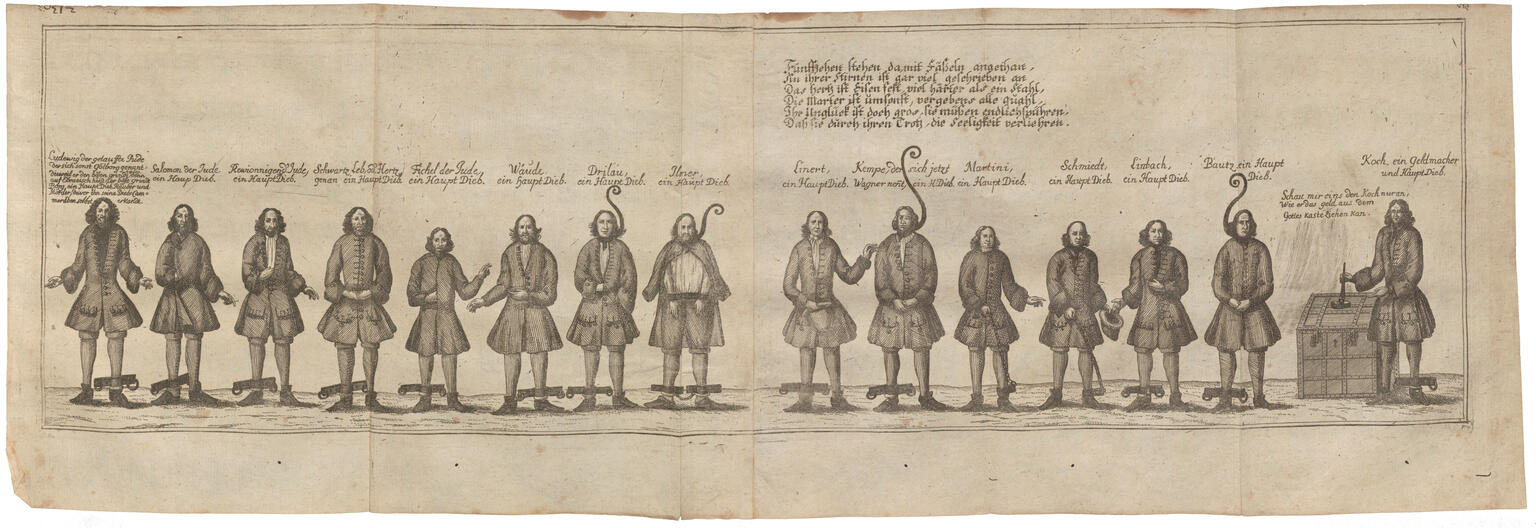 Funffzehen stehen da mit Fäßeln angethan,
An ihrer Stirnen ist gar viel geschrieben an
Das hertz ist Eisen fest, viel härter als ein Stahl,
Die Marter ist ümsonst, vergebens alle quahl,
Ihr Unglück ist doch gros, sie müßen endlich spühren,
Daß sie dürch ihren Trotz, die Seeligkeit verliehren.
Ludewig der getauffte Jude
der sich sonst
Salomon der Jude
ein Haup Dieb.
Jude,
ein Haupt Dieb.
Schwartz Leb od Hertz
genan ein Haupt Dieb
Fischel der Jude,
ein Haupt Dieb.
Waude
ein Haupt Dieb.
Drilau,
ein Haupt Dieb.
ein Haupt Dieb.
Linert,
ein Haupt Dieb.
Kempe, der sich jetzt
Wagner nent, ein H. Dieb.
Martini,
ein Haupt Dieb.
Schmiedt,
ein Haupt Dieb.
Einbach,
ein Haupt Dieb.
Bautz ein Haupt
Dieb.
Koch, ein Geldmacher
und Haupt Dieb.
Schau mir eins den Koch nur an,
Wie er das geld aus dem
Gottes Kaste Ziehen Kan.